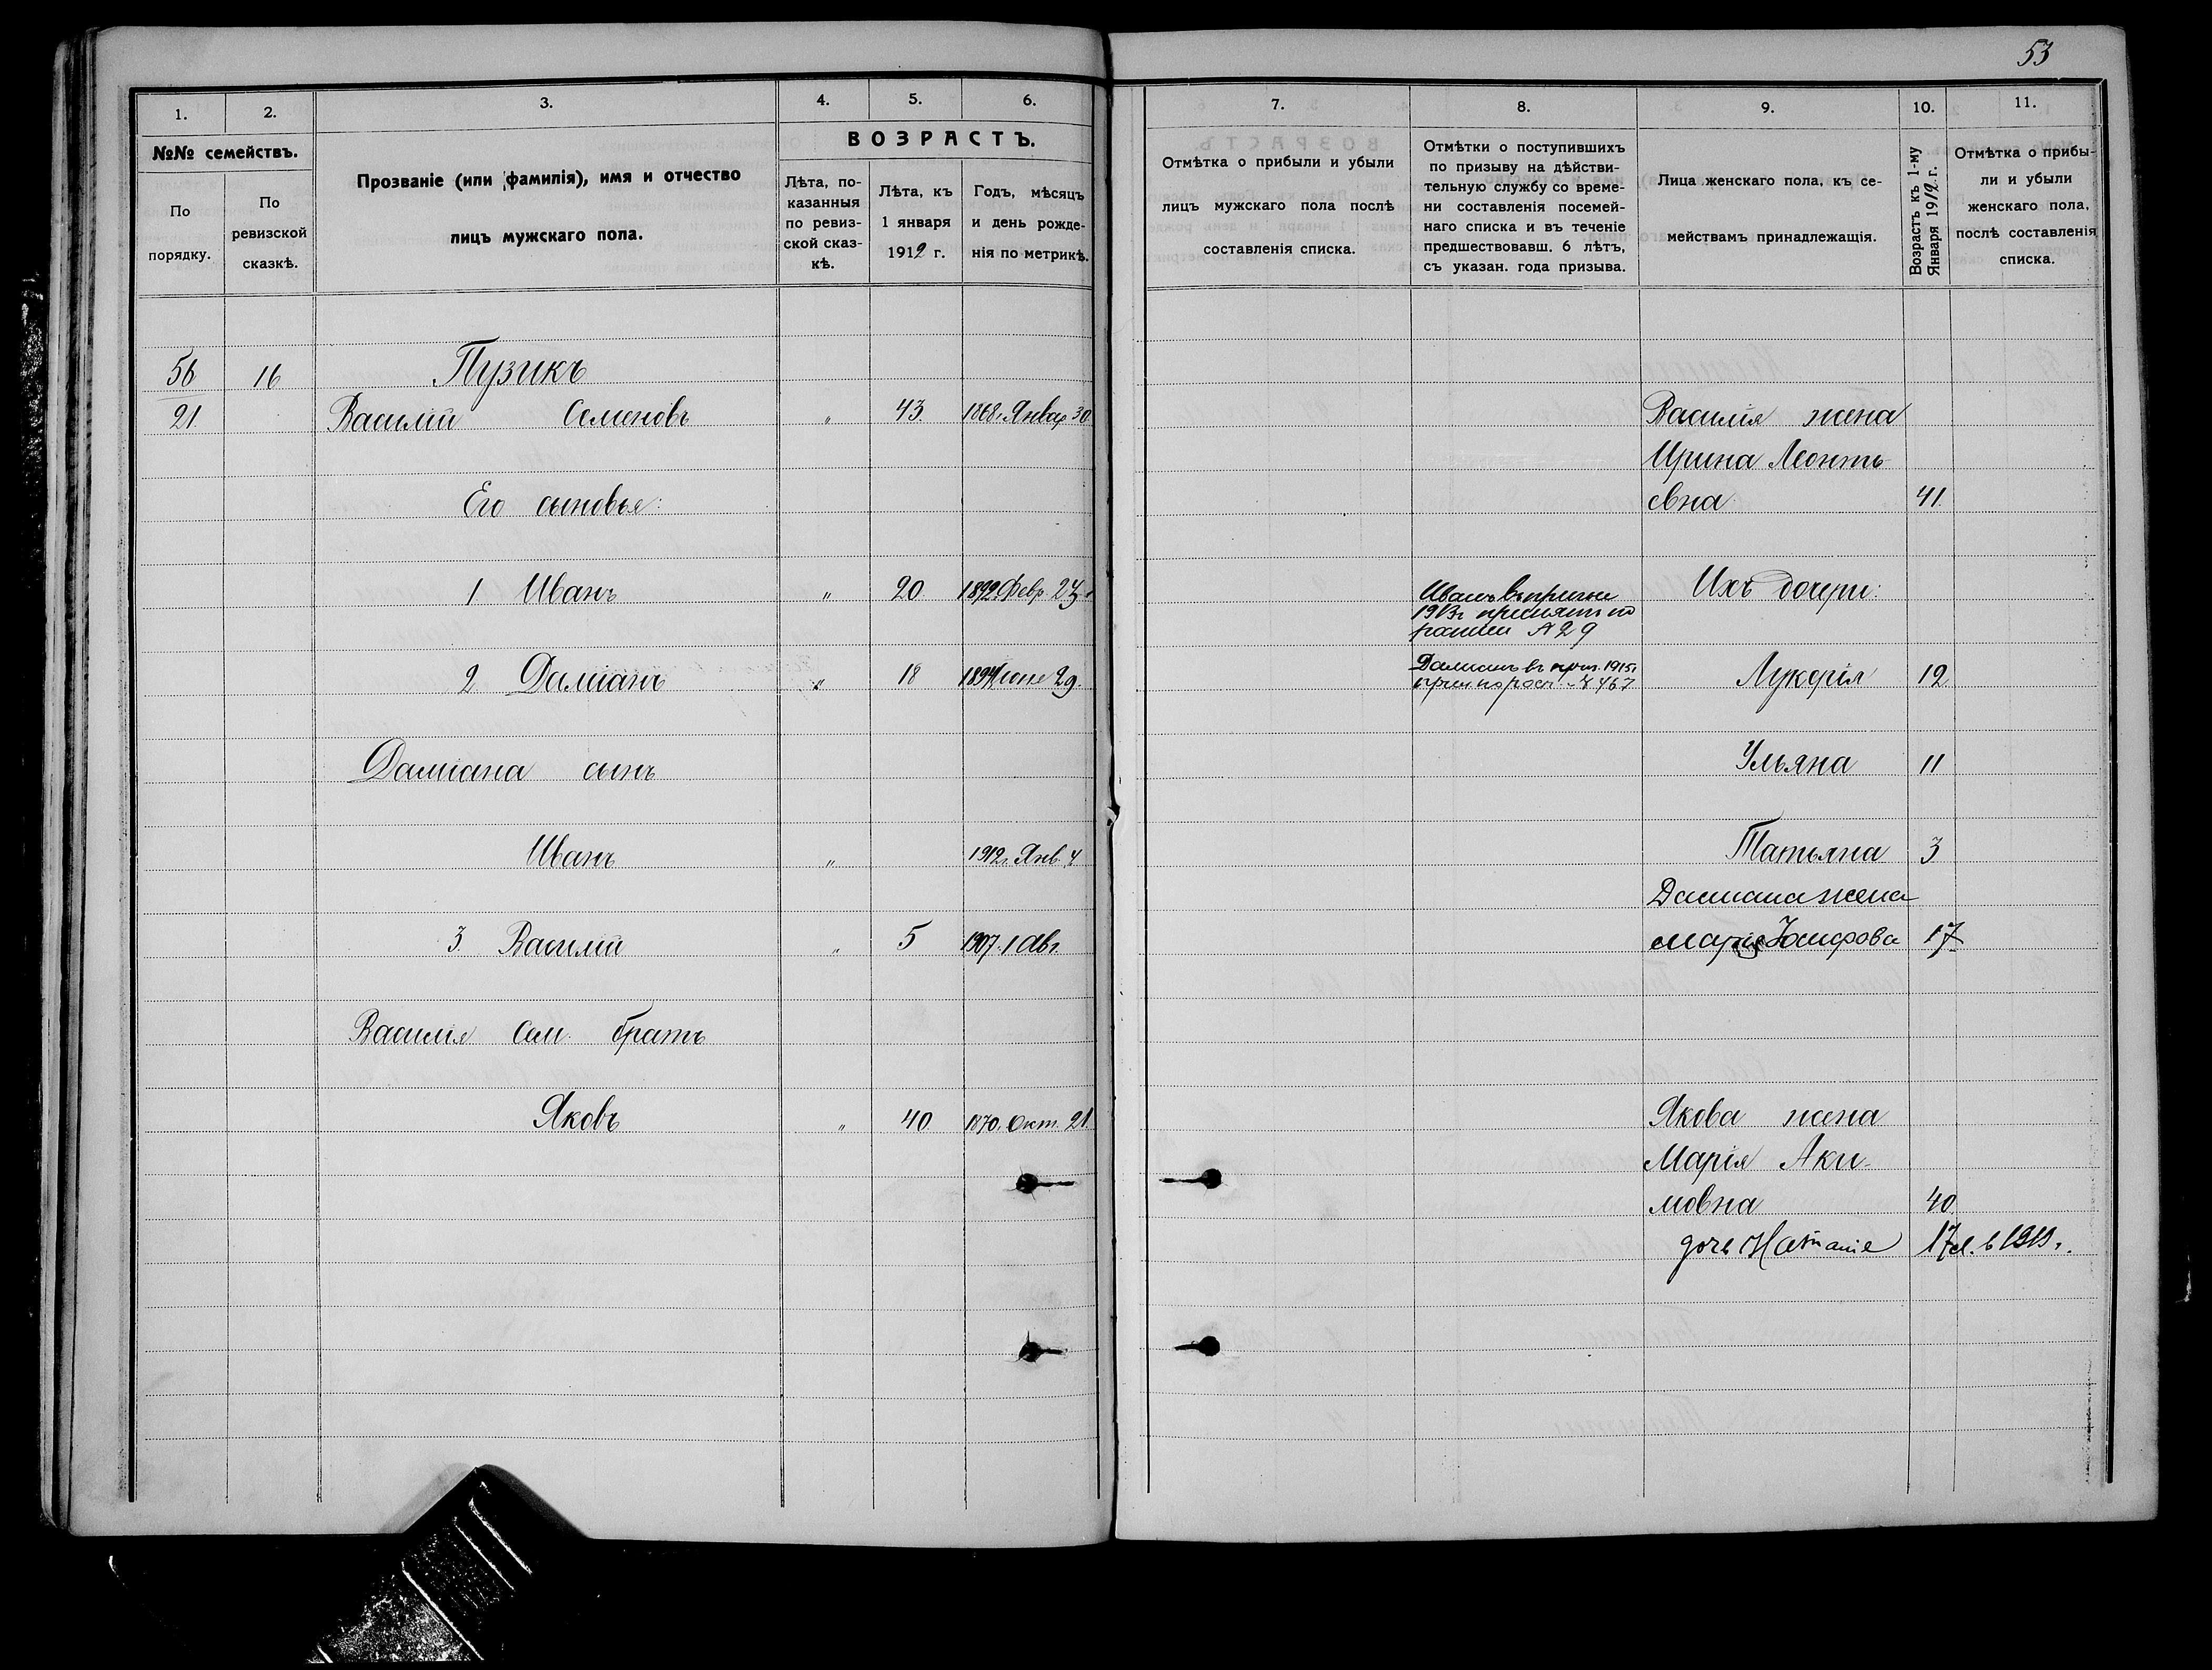 53
1.
2.
3.
4.
5.
6.
№№ семействъ.
По
порядку.
По
ревизской
сказкѣ.
Прозваніе (или фамилія), имя и отчество
лицъ мужскаго пола.
ВОЗРАСТЪ.
Лѣта, по-
казанныя
по ревиз-
ской сказ-
кѣ.
Лѣта, къ
1 января
1912 г.
Годъ, мѣсяцъ
и день рожде-
нія по метрикѣ.
56 16 Пузикъ
21. Василій Семеновъ " 43. 1868 г. Январ 30
Его сыновья:
1 Иванъ " 20. 1892 Февр. 23
2 Даміанъ " 18 1894 Іюне 29.
Даміана сынъ
Иванъ " 1912 г. Янв. 4
3. Василій " 5 1907. 1 Авг.
Василія Сем. братъ
Яковъ " 40 1870. Окт. 21.
7.
8.
9.
10.
11.
Отмѣтка о прибыли и убыли
лицъ мужскаго пола послѣ
составленія списка.
Отмѣтки о поступившихъ
по призыву на дѣйстви-
тельную службу со време-
ни составленія посемей-
наго списка и въ теченіе
предшествовавш. 6 лѣтъ,
съ указан. года призыва.
Лица женскаго пола, къ се-
мействамъ принадлежащія.
Возрастъ къ 1-му
Января 1912 г.
Отмѣтка о прибы-
ли и убыли
женскаго пола,
послѣ составленія
списка.
Василія жена
Ирина Леонть-
евна 41.
Иванъ въ призыв
1913 г. принятъ по
№ 29
Ихъ дочери:
Даміанъ въ приз. 1915 г.
№ 467
Лукерія 12
Ульяна 11
Татьяна 3
Даміана жена
Марія Іосифова 17
Якова жена
Марія Аки-
мовна 40
дочь Наталіе 17 л. в 1919 г.